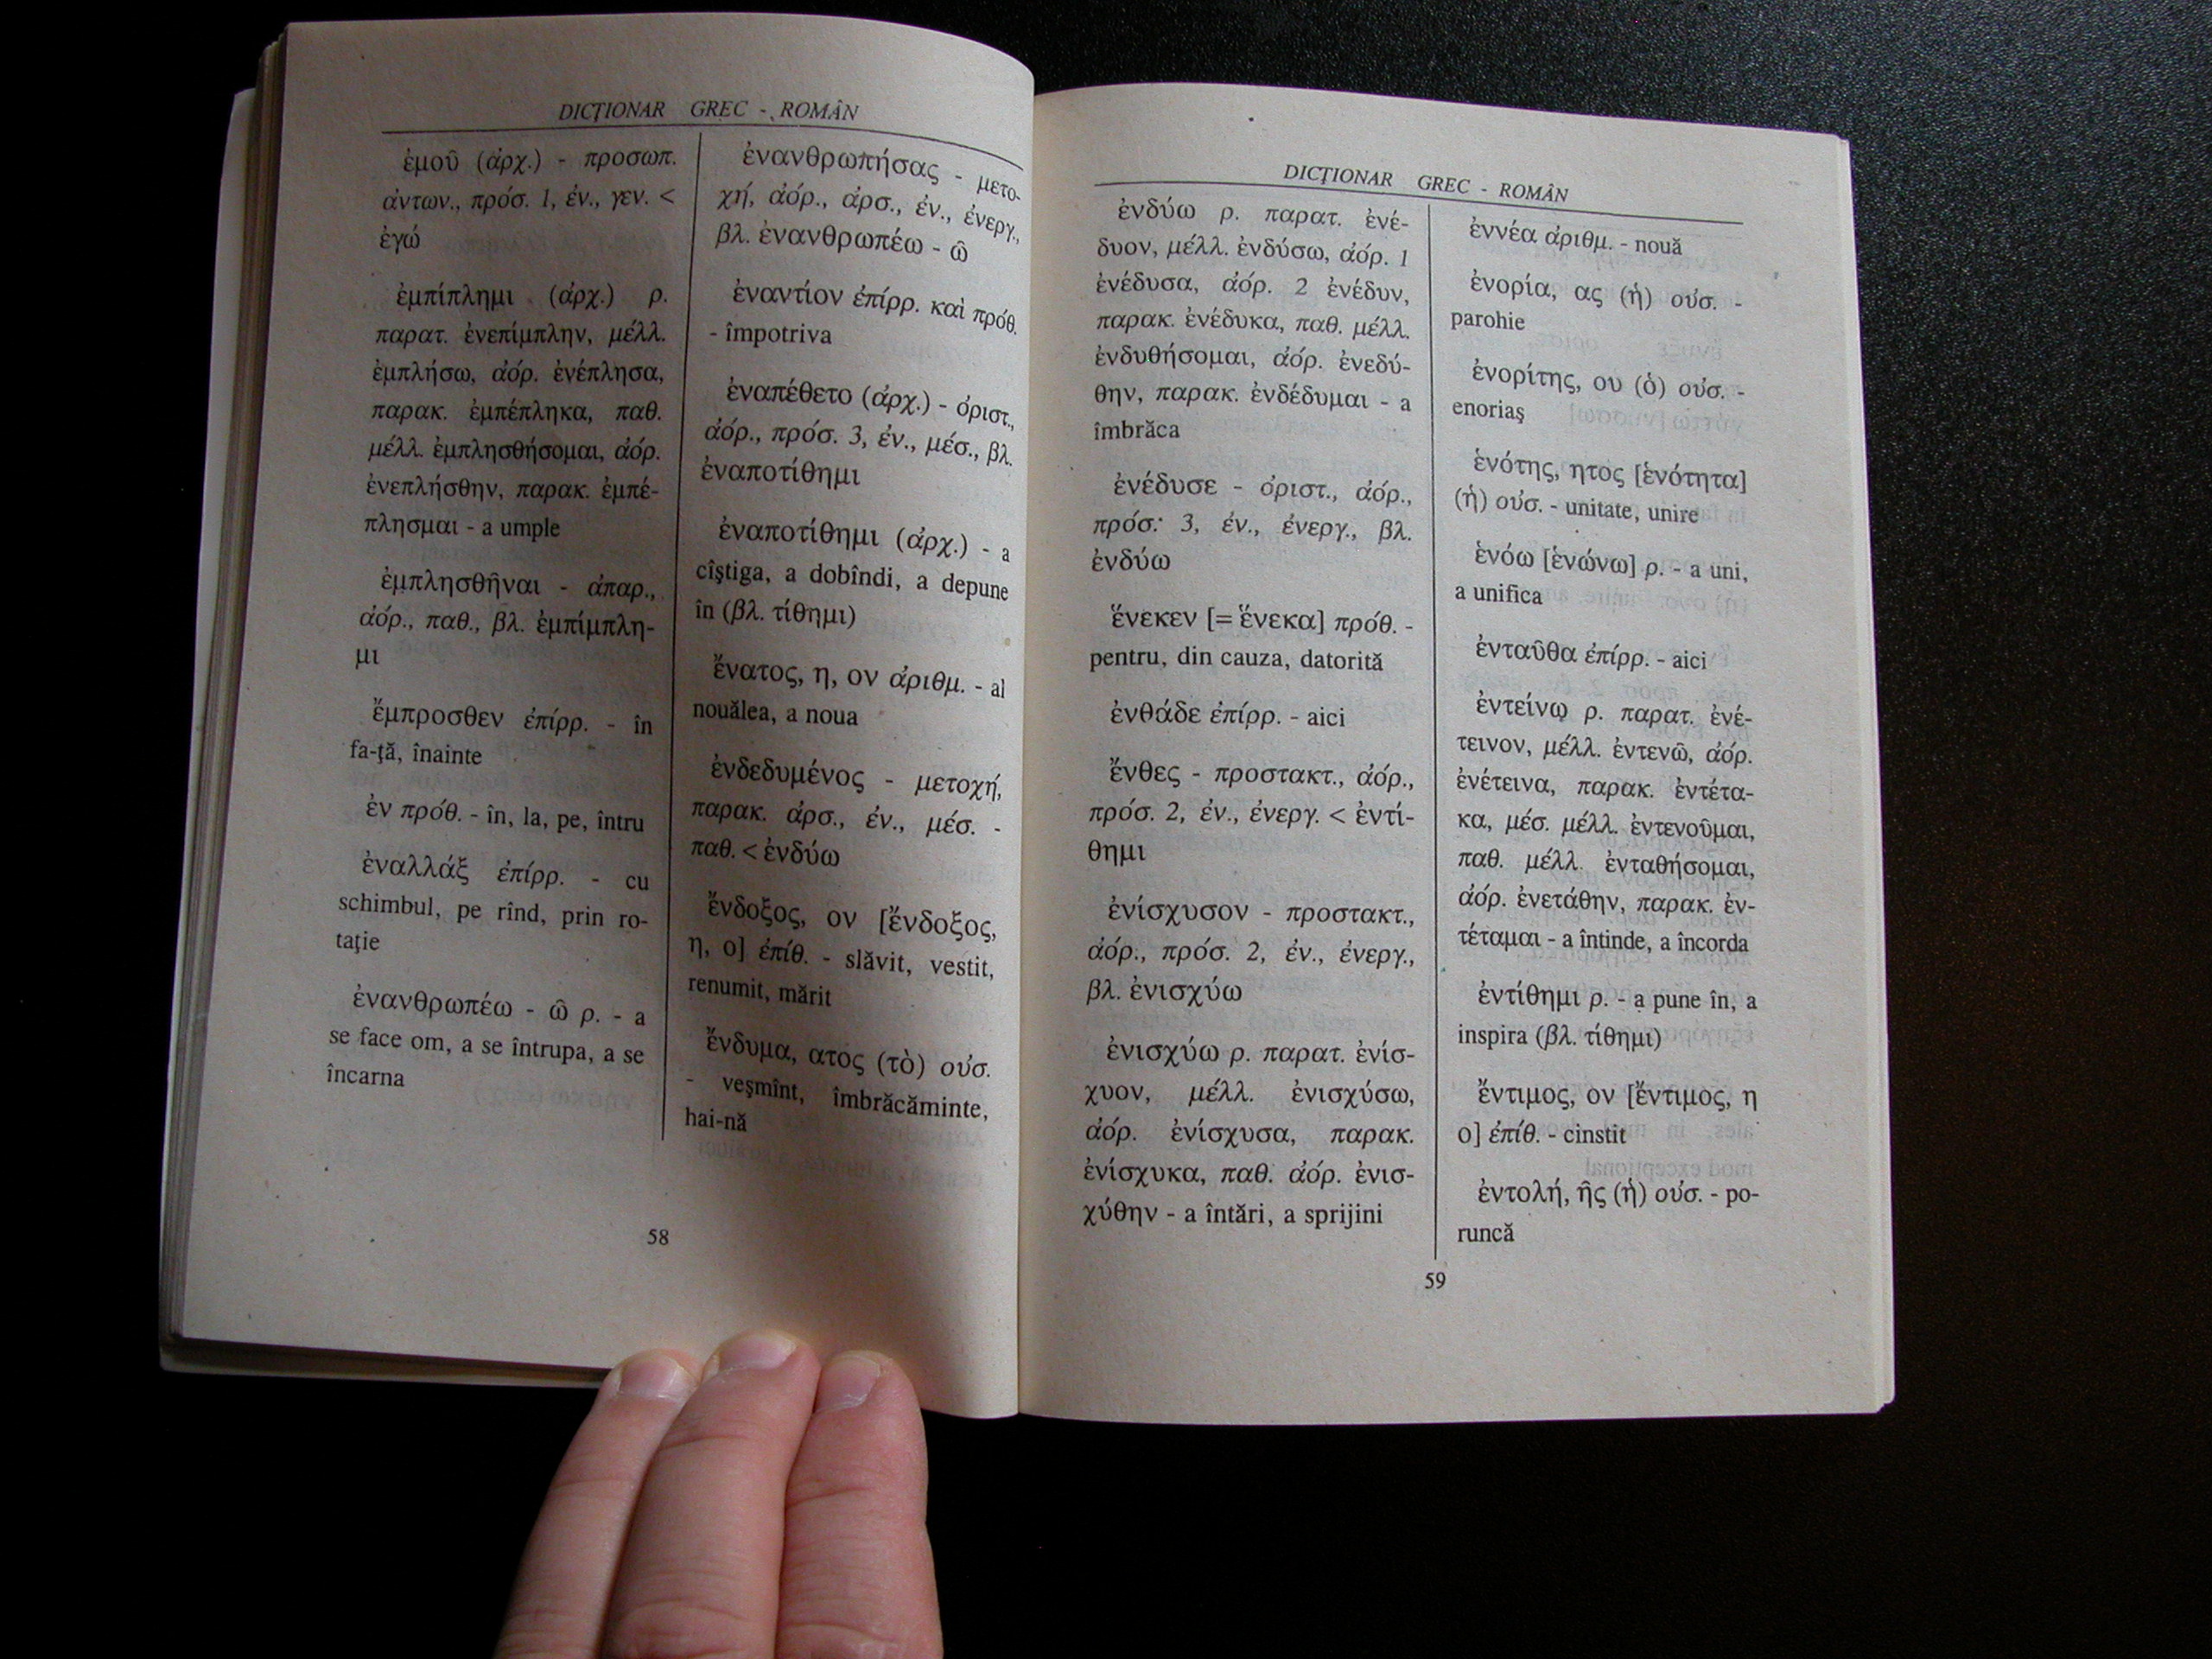 DICŢIONAR GREC - ROMÂN
ἐμοῦ (ἀρχ.) - προσωπ.
ἀντων., πρόσ. 1, ἑν., γεν. <
ἐγώ
ἐμπίπλημι (ἀρχ.) ρ.
παρατ. ἐνεπίμπλην, μέλλ.
ἐμπλήσω, ἀόρ. ἐνέπλησα,
παρακ. ἐμπέπληκα, παθ.
μέλλ. ἐμπλησθήσομαι, ἀόρ.
ἐνεπλήσθην, παρακ. ἐμπέ-
πλησμαι - a umple
ἐμπλησθῆναι - ἀπαρ.,
ἀόρ., παθ., βλ. ἐμπίμπλη-
μι
ἔμπροσθεν ἐπίρρ. - în
fa-ţă, înainte
ἐν πρόθ. - în, la, pe, întru
ἐναλλάξ ἐπίρρ. - cu
schimbul, pe rînd, prin ro-
taţie
ἐνανθρωπέω - ῶ ρ. - a
se face om, a se întrupa, a se
încarna
ἐνανθρωπήσας - μετο-
χή, ἀόρ., ἀρσ., ἑν., ἐνεργ.,
βλ. ἐνανθρωπέω - ῶ
ἐναντίον ἐπίρρ. καὶ πρόθ.
- împotriva
ἐναπέθετο (ἀρχ.) - ὁριστ.,
ἀόρ., πρόσ. 3, ἑν., μέσ., βλ.
ἐναποτίθημι
ἐναποτίθημι (ἀρχ.) - a
cîştiga, a dobîndi, a depune
în (βλ. τίθημι)
ἔνατος, η, ον ἀριθμ. - al
nouălea, a noua
ἐνδεδυμένος - μετοχή,
παρακ. ἀρσ., ἑν., μέσ. -
παθ. < ἐνδύω
ἔνδοξος, ον [ἔνδοξος,
η, ο] ἐπίθ. - slăvit, vestit,
renumit, mărit
ἔνδυμα, ατος (τὸ) οὐσ.
- veşmînt, îmbrăcăminte,
hai-nă
58
DICŢIONAR GREC - ROMÂN
ἐνδύω ρ. παρατ. ἐνέ-
δυον, μέλλ. ἐνδύσω, ἀόρ. 1
ἐνέδυσα, ἀόρ. 2 ἐνέδυν,
παρακ. ἐνέδυκα, παθ. μέλλ.
ἐνδυθήσομαι, ἀόρ. ἐνεδύ-
θην, παρακ. ἐνδέδυμαι - a
îmbrăca
ἐνέδυσε - ὁριστ., ἀόρ.,
πρόσ. 3, ἑν., ἐνεργ., βλ.
ἐνδύω
ἕνεκεν [= ἕνεκα] πρόθ. -
pentru, din cauza, datorită
ἐνθάδε ἐπίρρ. - aici
ἔνθες - προστακτ., ἀόρ.,
πρόσ. 2, ἑν., ἐνεργ. < ἐντί-
θημι
ἐνίσχυσον - προστακτ.,
ἀόρ., πρόσ. 2, ἑν., ἐνεργ.,
βλ. ἐνισχύω
ἐνισχύω ρ. παρατ. ἐνίσ-
χυον, μέλλ. ἐνισχύσω,
ἀόρ. ἐνίσχυσα, παρακ.
ἐνίσχυκα, παθ. ἀόρ. ἐνισ-
χύθην - a întări, a sprijini
ἐννέα ἀριθμ. - nouă
ἐνορία, ας (ἡ) οὐσ. -
parohie
ἐνορίτης, ου (ὁ) οὐσ. -
enoriaş
ἑνότης, ητος [ἑνότητα]
(ἡ) οὐσ. - unitate, unire
ἑνόω [ἑνώνω] ρ. - a uni,
a unifica
ἐνταῦθα ἐπίρρ. - aici
ἐντείνω ρ. παρατ. ἐνέ-
τεινον, μέλλ. ἐντενῶ, ἀόρ.
ἐνέτεινα, παρακ. ἐντέτα-
κα, μέσ. μέλλ. ἐντενοῦμαι,
παθ. μέλλ. ἐνταθήσομαι,
ἀόρ. ἐνετάθην, παρακ. ἐν-
τέταμαι - a întinde, a încorda
ἐντίθημι ρ. - a pune în, a
inspira (βλ. τίθημι)
ἔντιμος, ον [ἔντιμος, η
ο] ἐπίθ. - cinstit
ἐντολή, ῆς (ἡ) οὐσ. - po-
runcă
59